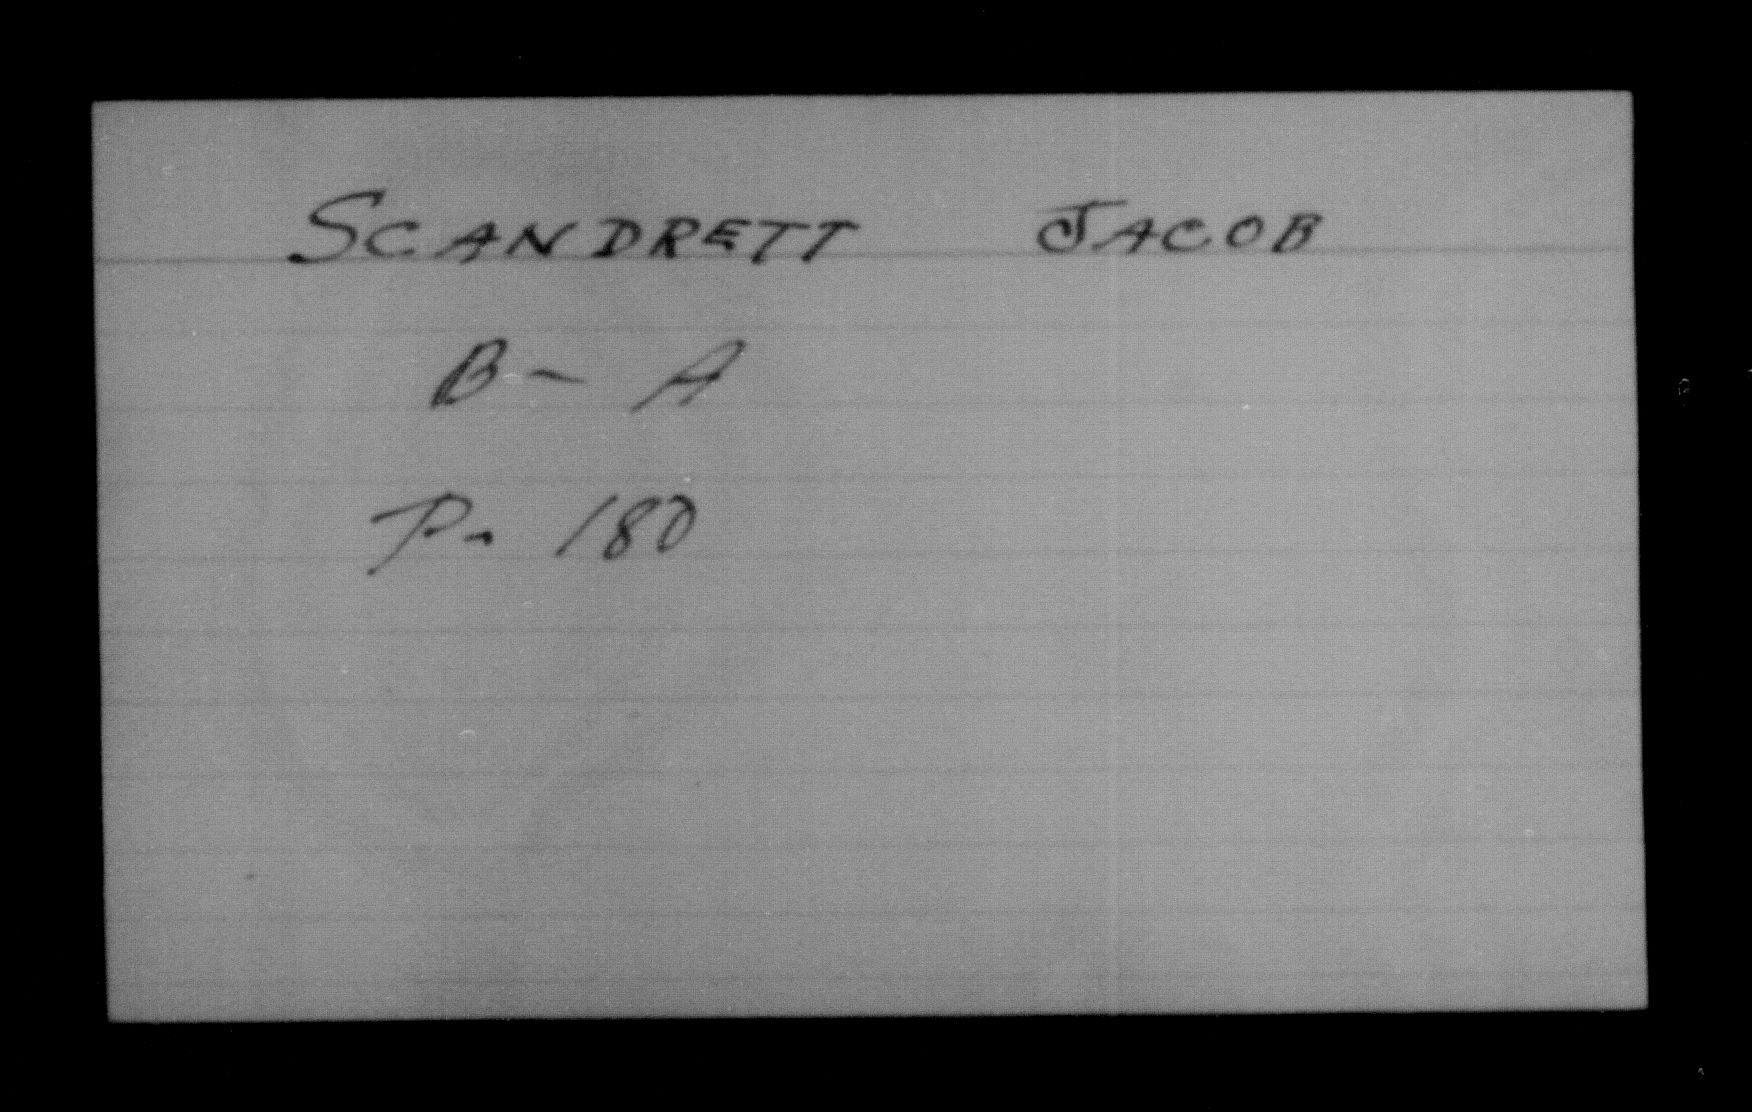 SCANDRETT JACOB
B- A
P. 180